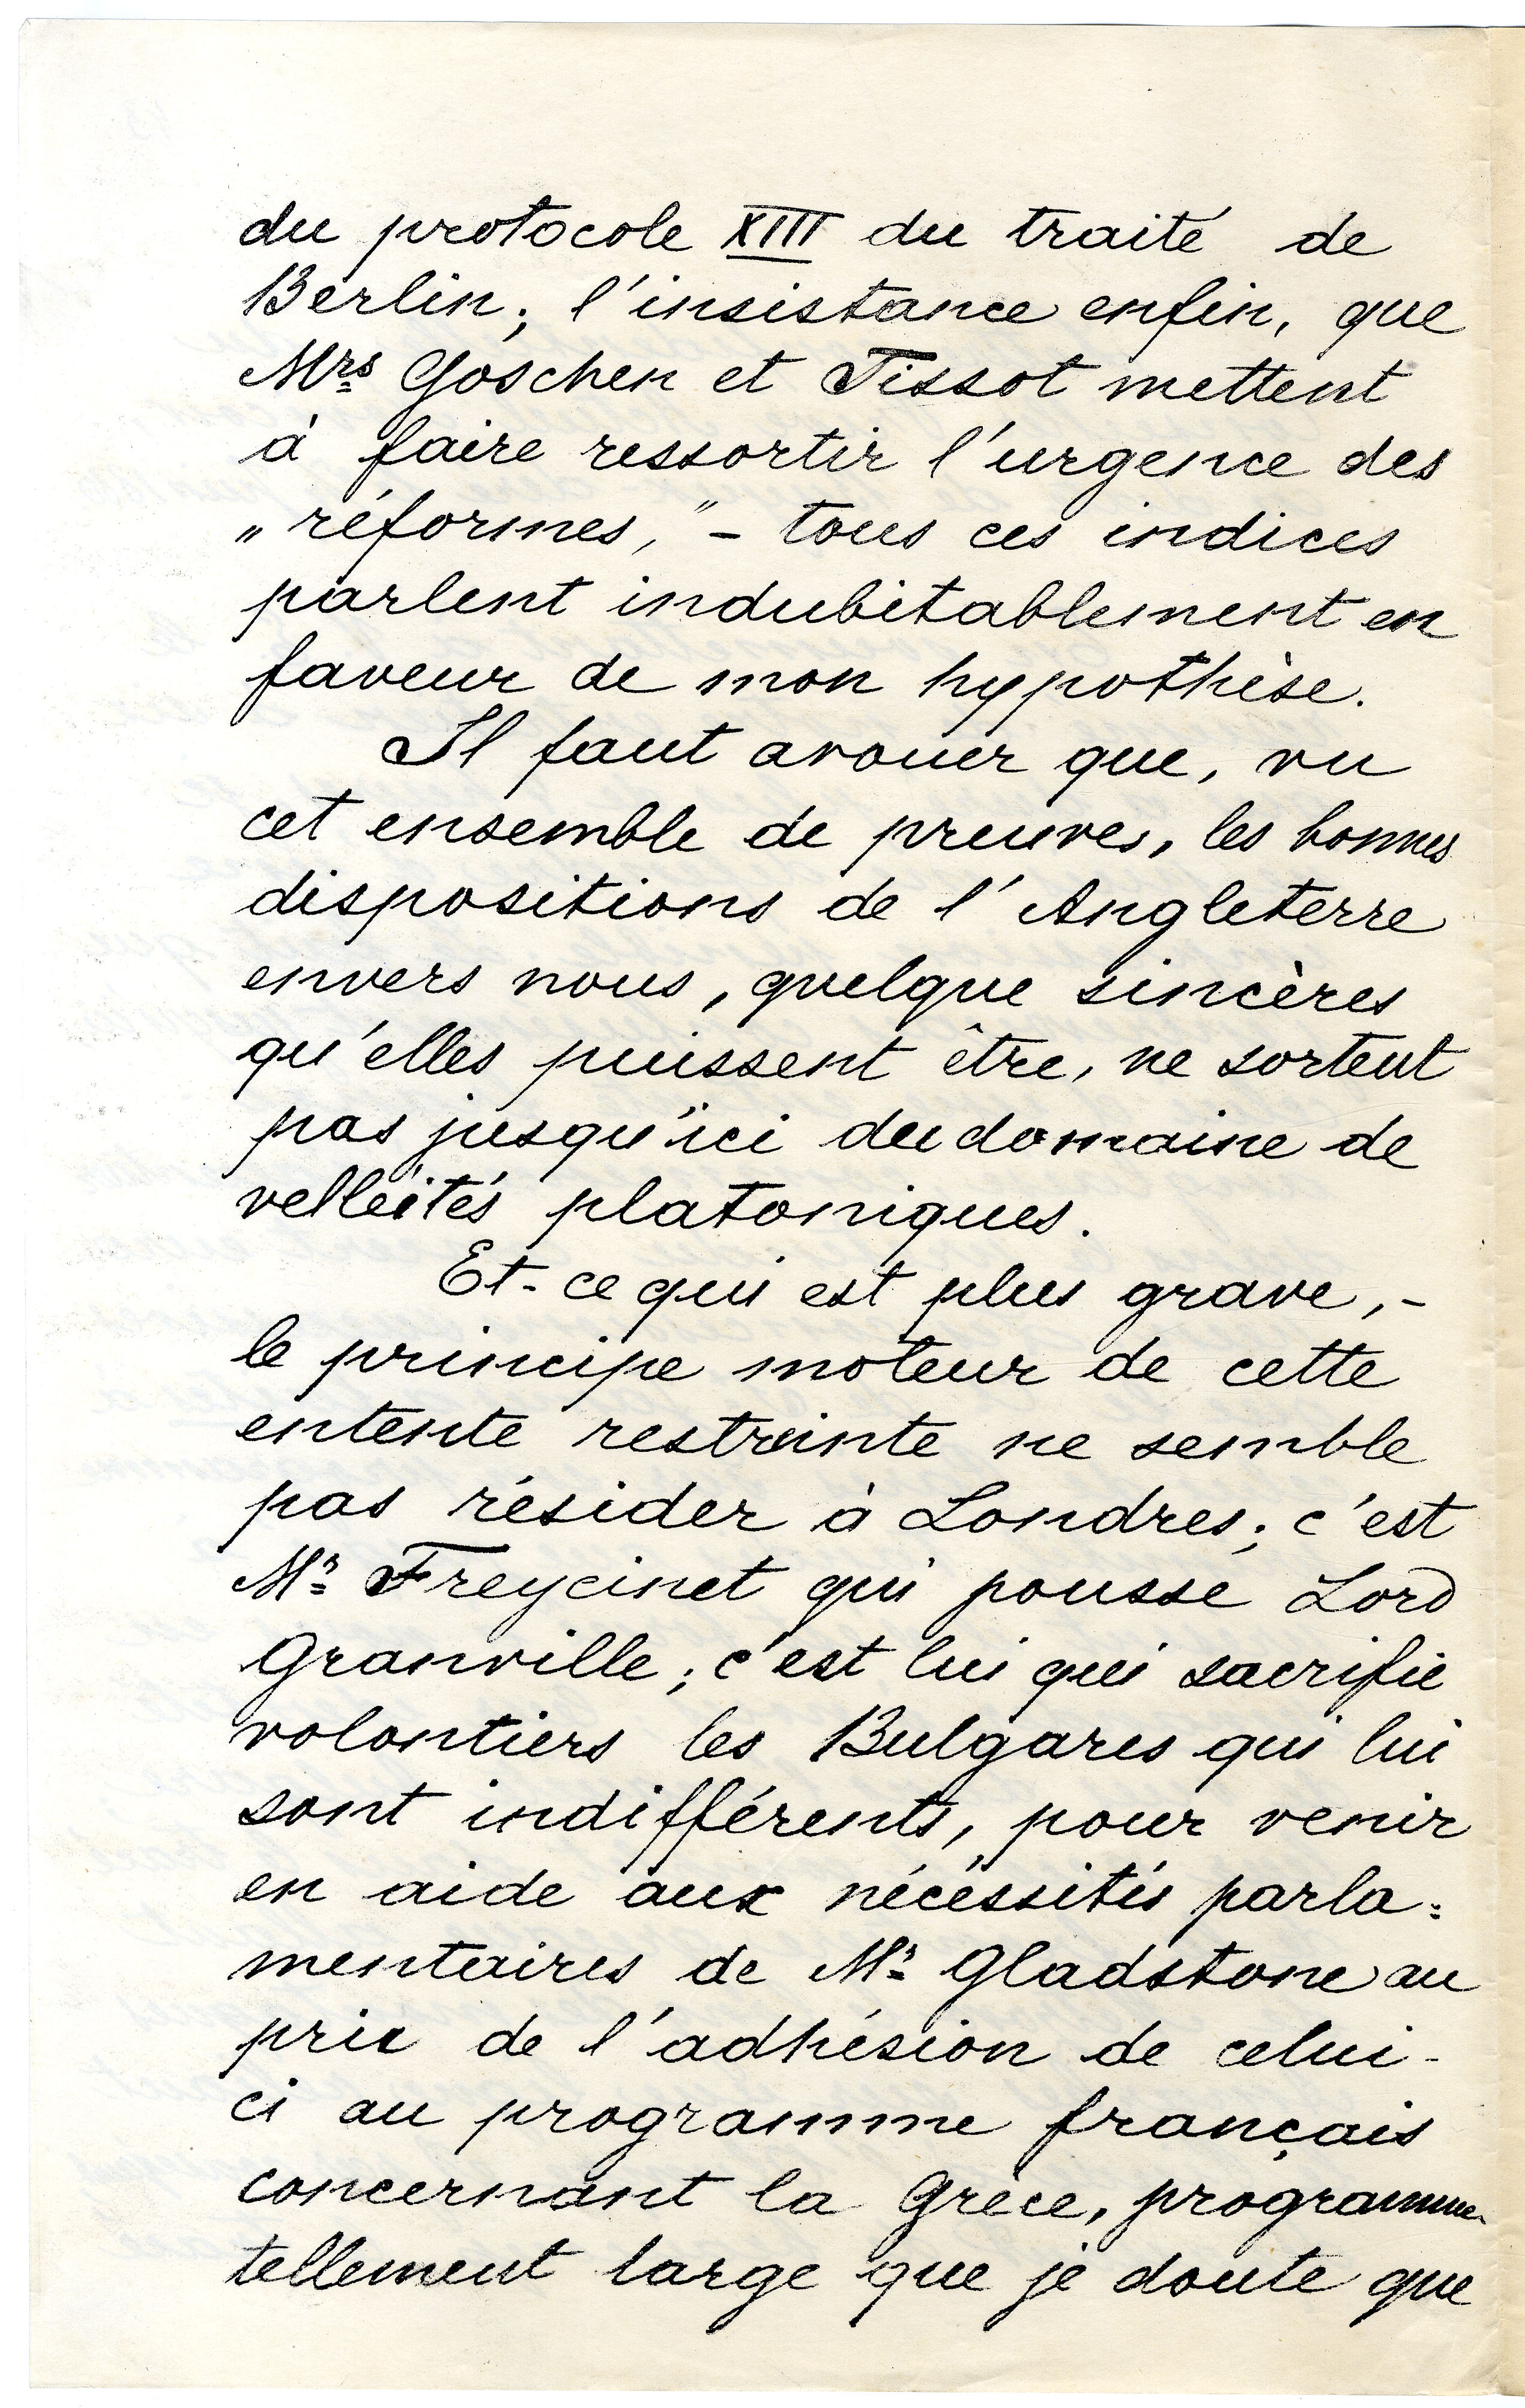 du protocole XIII du traité de
Berlin; l'insistance enfin, que
Mrs Goschen et Tissot mettent
à faire ressortir l'urgence des
„réformes,” – tous ces indices
parlent indubitablement en
faveur de mon hypothèse.
Il faut avouer que, vu
cet ensemble de preuves, les bonnes
dispositions de l'Angleterre
envers nous, quelque sincères
qu'elles puissent être, ne sortent
pas jusqu'ici du domaine de
velléités platoniques.
Et - ce qui est plus grave, -
le principe moteur de cette
entente restreinte ne semble
pas résider à Londres; c'est
Mr Freycinet qui pousse Lord
Granville; c'est lui qui sacrifie
volontiers les Bulgares qui lui
sont indifférents, pour venir
en aide aux nécéssités parla=
mentaires de Mr Gladstone au
prix de l'adhésion de celui-
ci au programme français
concernant la Grèce, programme
tellement large que je doute que